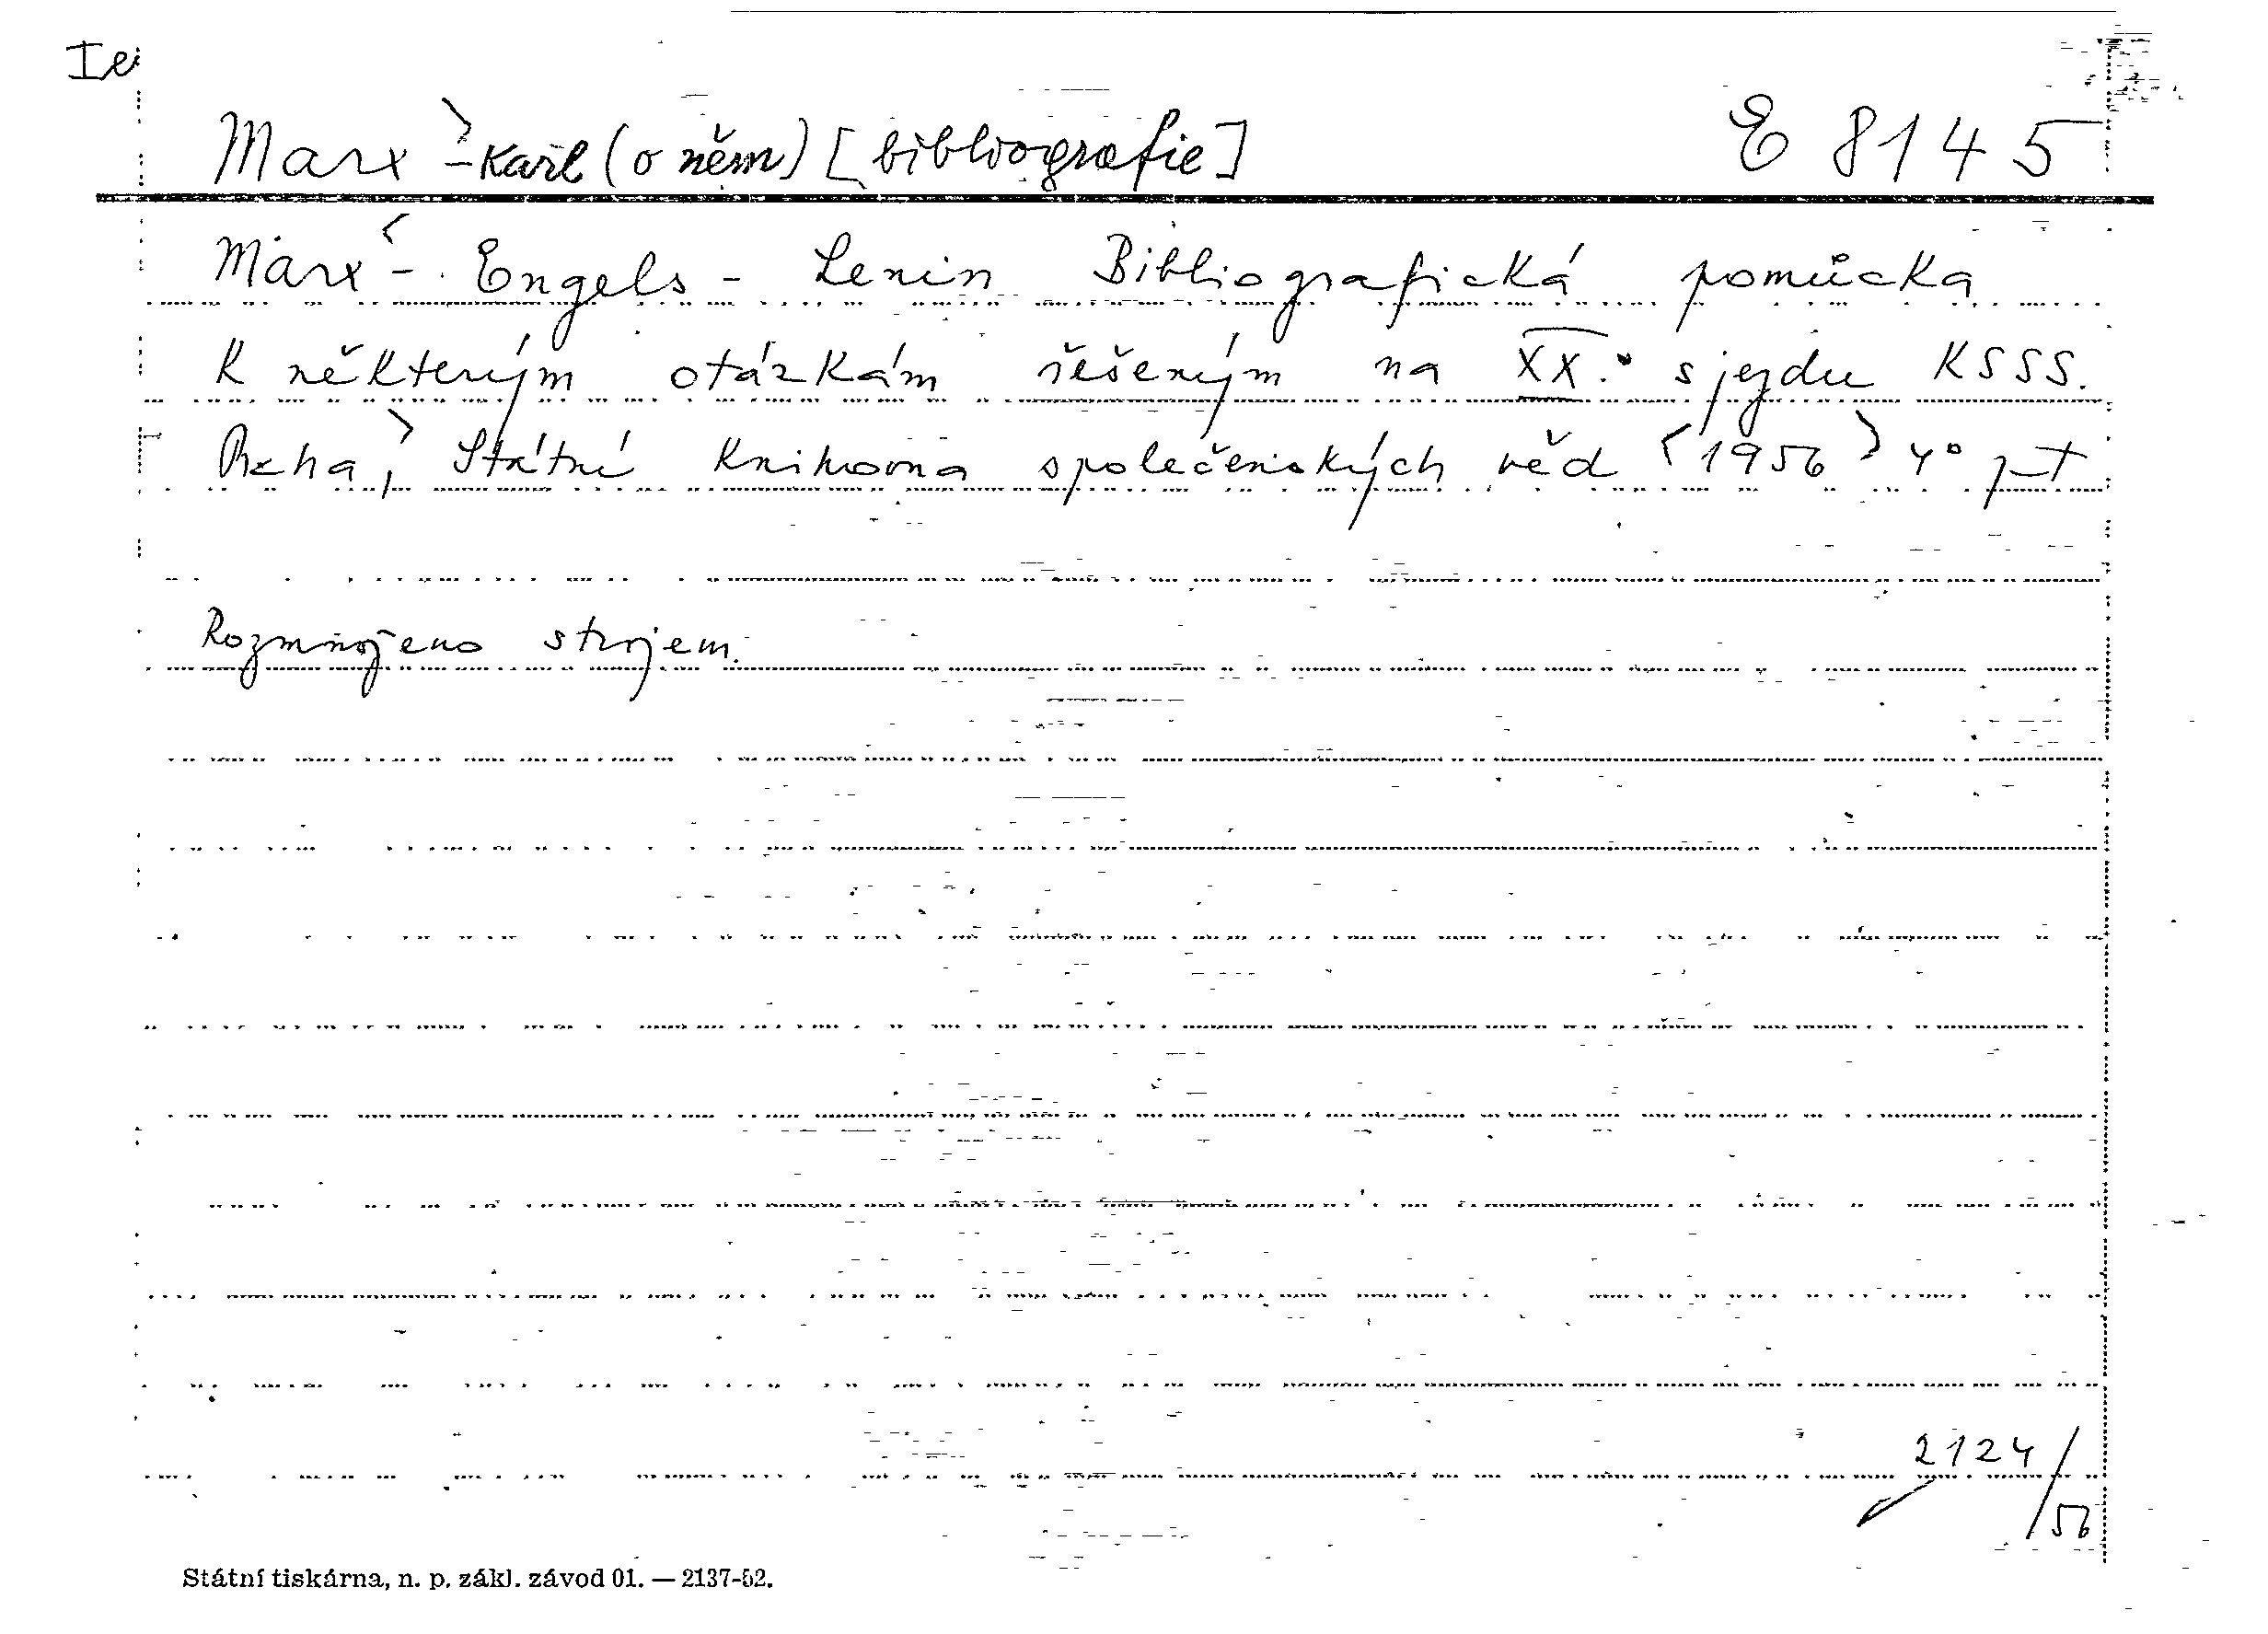 Ie
Marx - Karl (o něm) [bibliografie] E 8145
Marx - Engels - Lenin Bibliografická pomůcka
k některým otázkám řešeným na XX. sjezdu KSSS.
Praha, Státní knihovna společenských věd <1956> 4°
Rozmnoženo strojem.
2124/56
Státní tiskárna, n. p. zákl. závod 01. — 2137-52.